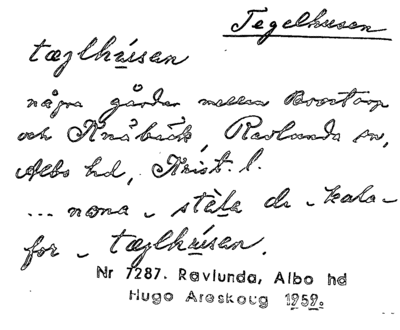 Tegelhusen
tæglhúsen
några gårdar mellan Brostorp
och Knäbäck, Ravlunda sn,
Albo hd, Krist. l.
... nåna - stèla de - kala-
for - tæglhúsen.
Nr 7287. Ravlunda, Albo hd
Hugo Areskoug 1959.